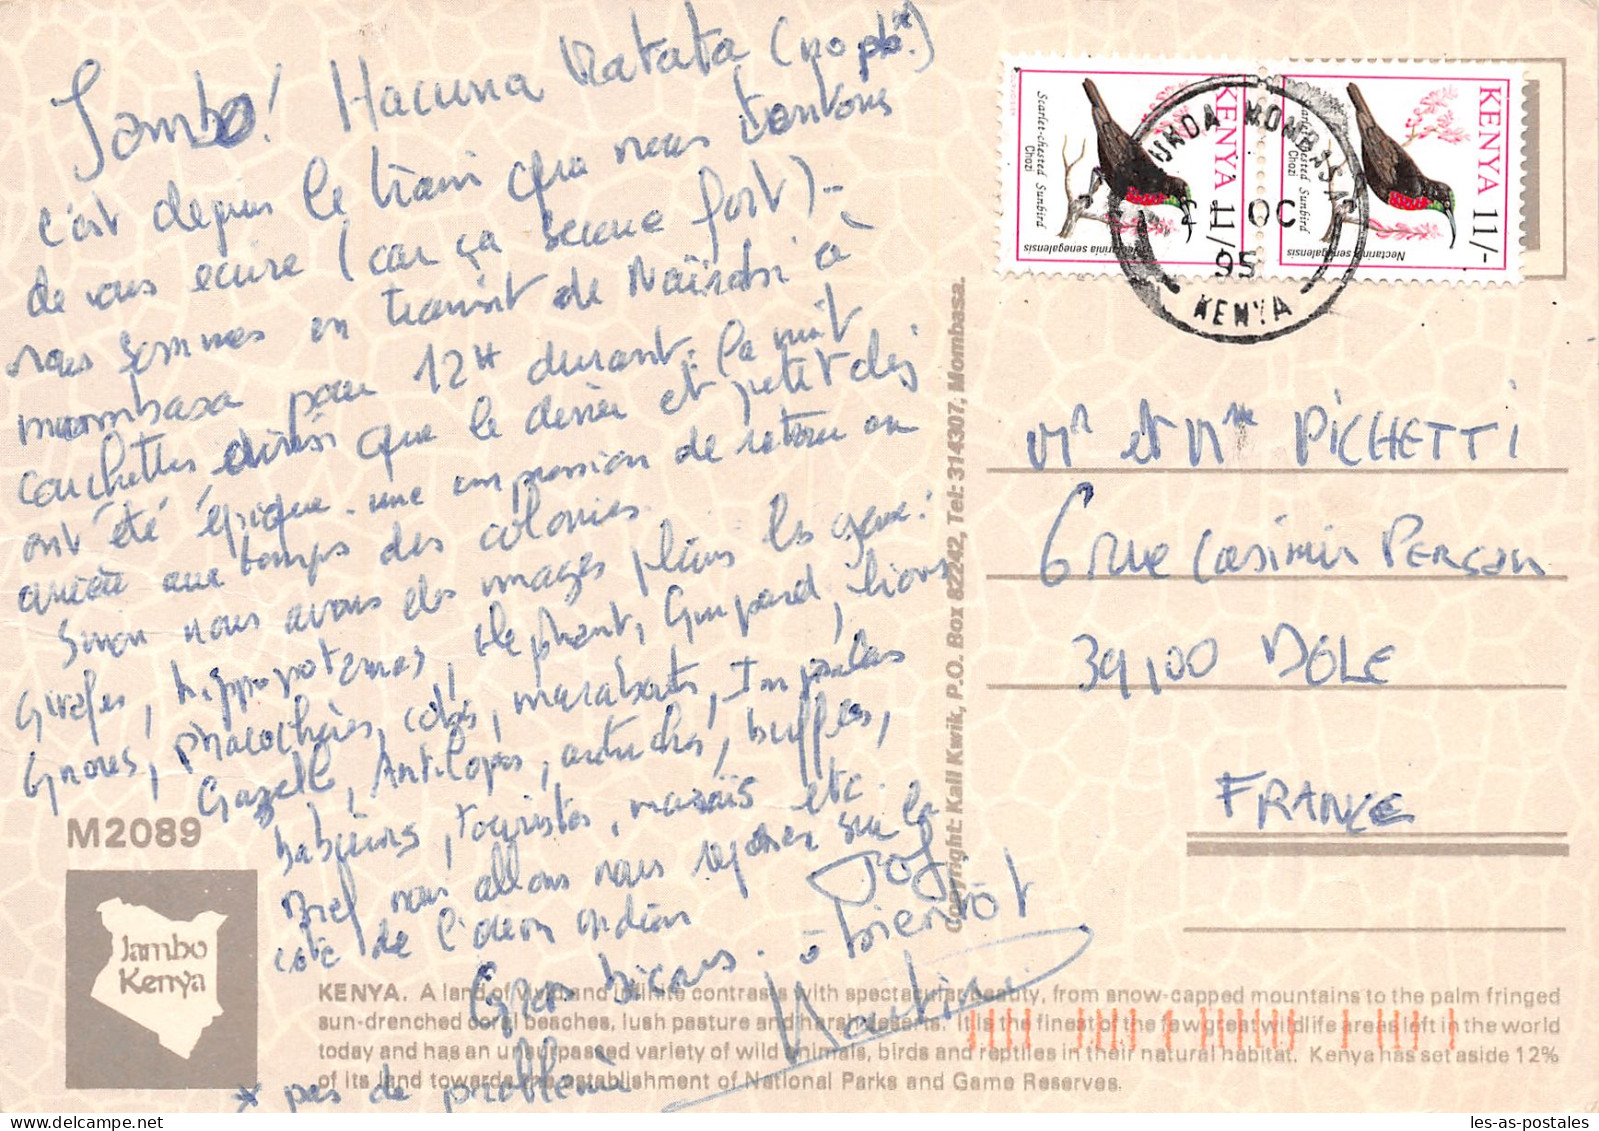 Jambo! Hacuna Matata (no pb.*)
c'est depuis le train que nous tentons
de vous écrire (car ça secoue fort)-
nous sommes en transit de Naïrobi à
mombasa pour 12H durant. la nuit
couchettes que le dîner et petit dej
ont été épique. une impression de retour en
arrière aux temps des colonies.
Sinon nous avons des images pleins les yeux:
Girafes, hippopotames, éléphant, Guépard, lions
Gnous, phacochères, cobs, marabouts, Impalas
Gazelle, Antilopes, autruches, buffles,
babouins, touristes, masaïs etc.
Bref nous allons nous reposer sur la
côte de l'océan indien
Gros bisous. à bientôt
* pas de problème
M2089
Jambo
Kenya
KENYA. A land of vivid and infinite contrasts with spectacular beauty, from snow-capped mountains to the palm fringed
sun-drenched coral beaches, lush pasture and harsh deserts. It is the finest of the few great wildlife areas left in the world
today and has an unsurpassed variety of wild animals, birds and reptiles in their natural habitat. Kenya has set aside 12%
of its land towards the establishment of National Parks and Game Reserves.
Copyright: Kall Kwik, P.O. Box 82242, Tel: 314307, Mombasa.
KENYA 11/-
Scarlet-chested Sunbird
Chozi
Nectarinia senegalensis
KENYA 11/-
Scarlet-chested Sunbird
Chozi
Nectarinia senegalensis
MOMBASA
OC
95
KENYA
Mr et Mme PICHETTI
6 rue Casimir PERSAN
39100 DOLE
FRANCE
les-as-postales